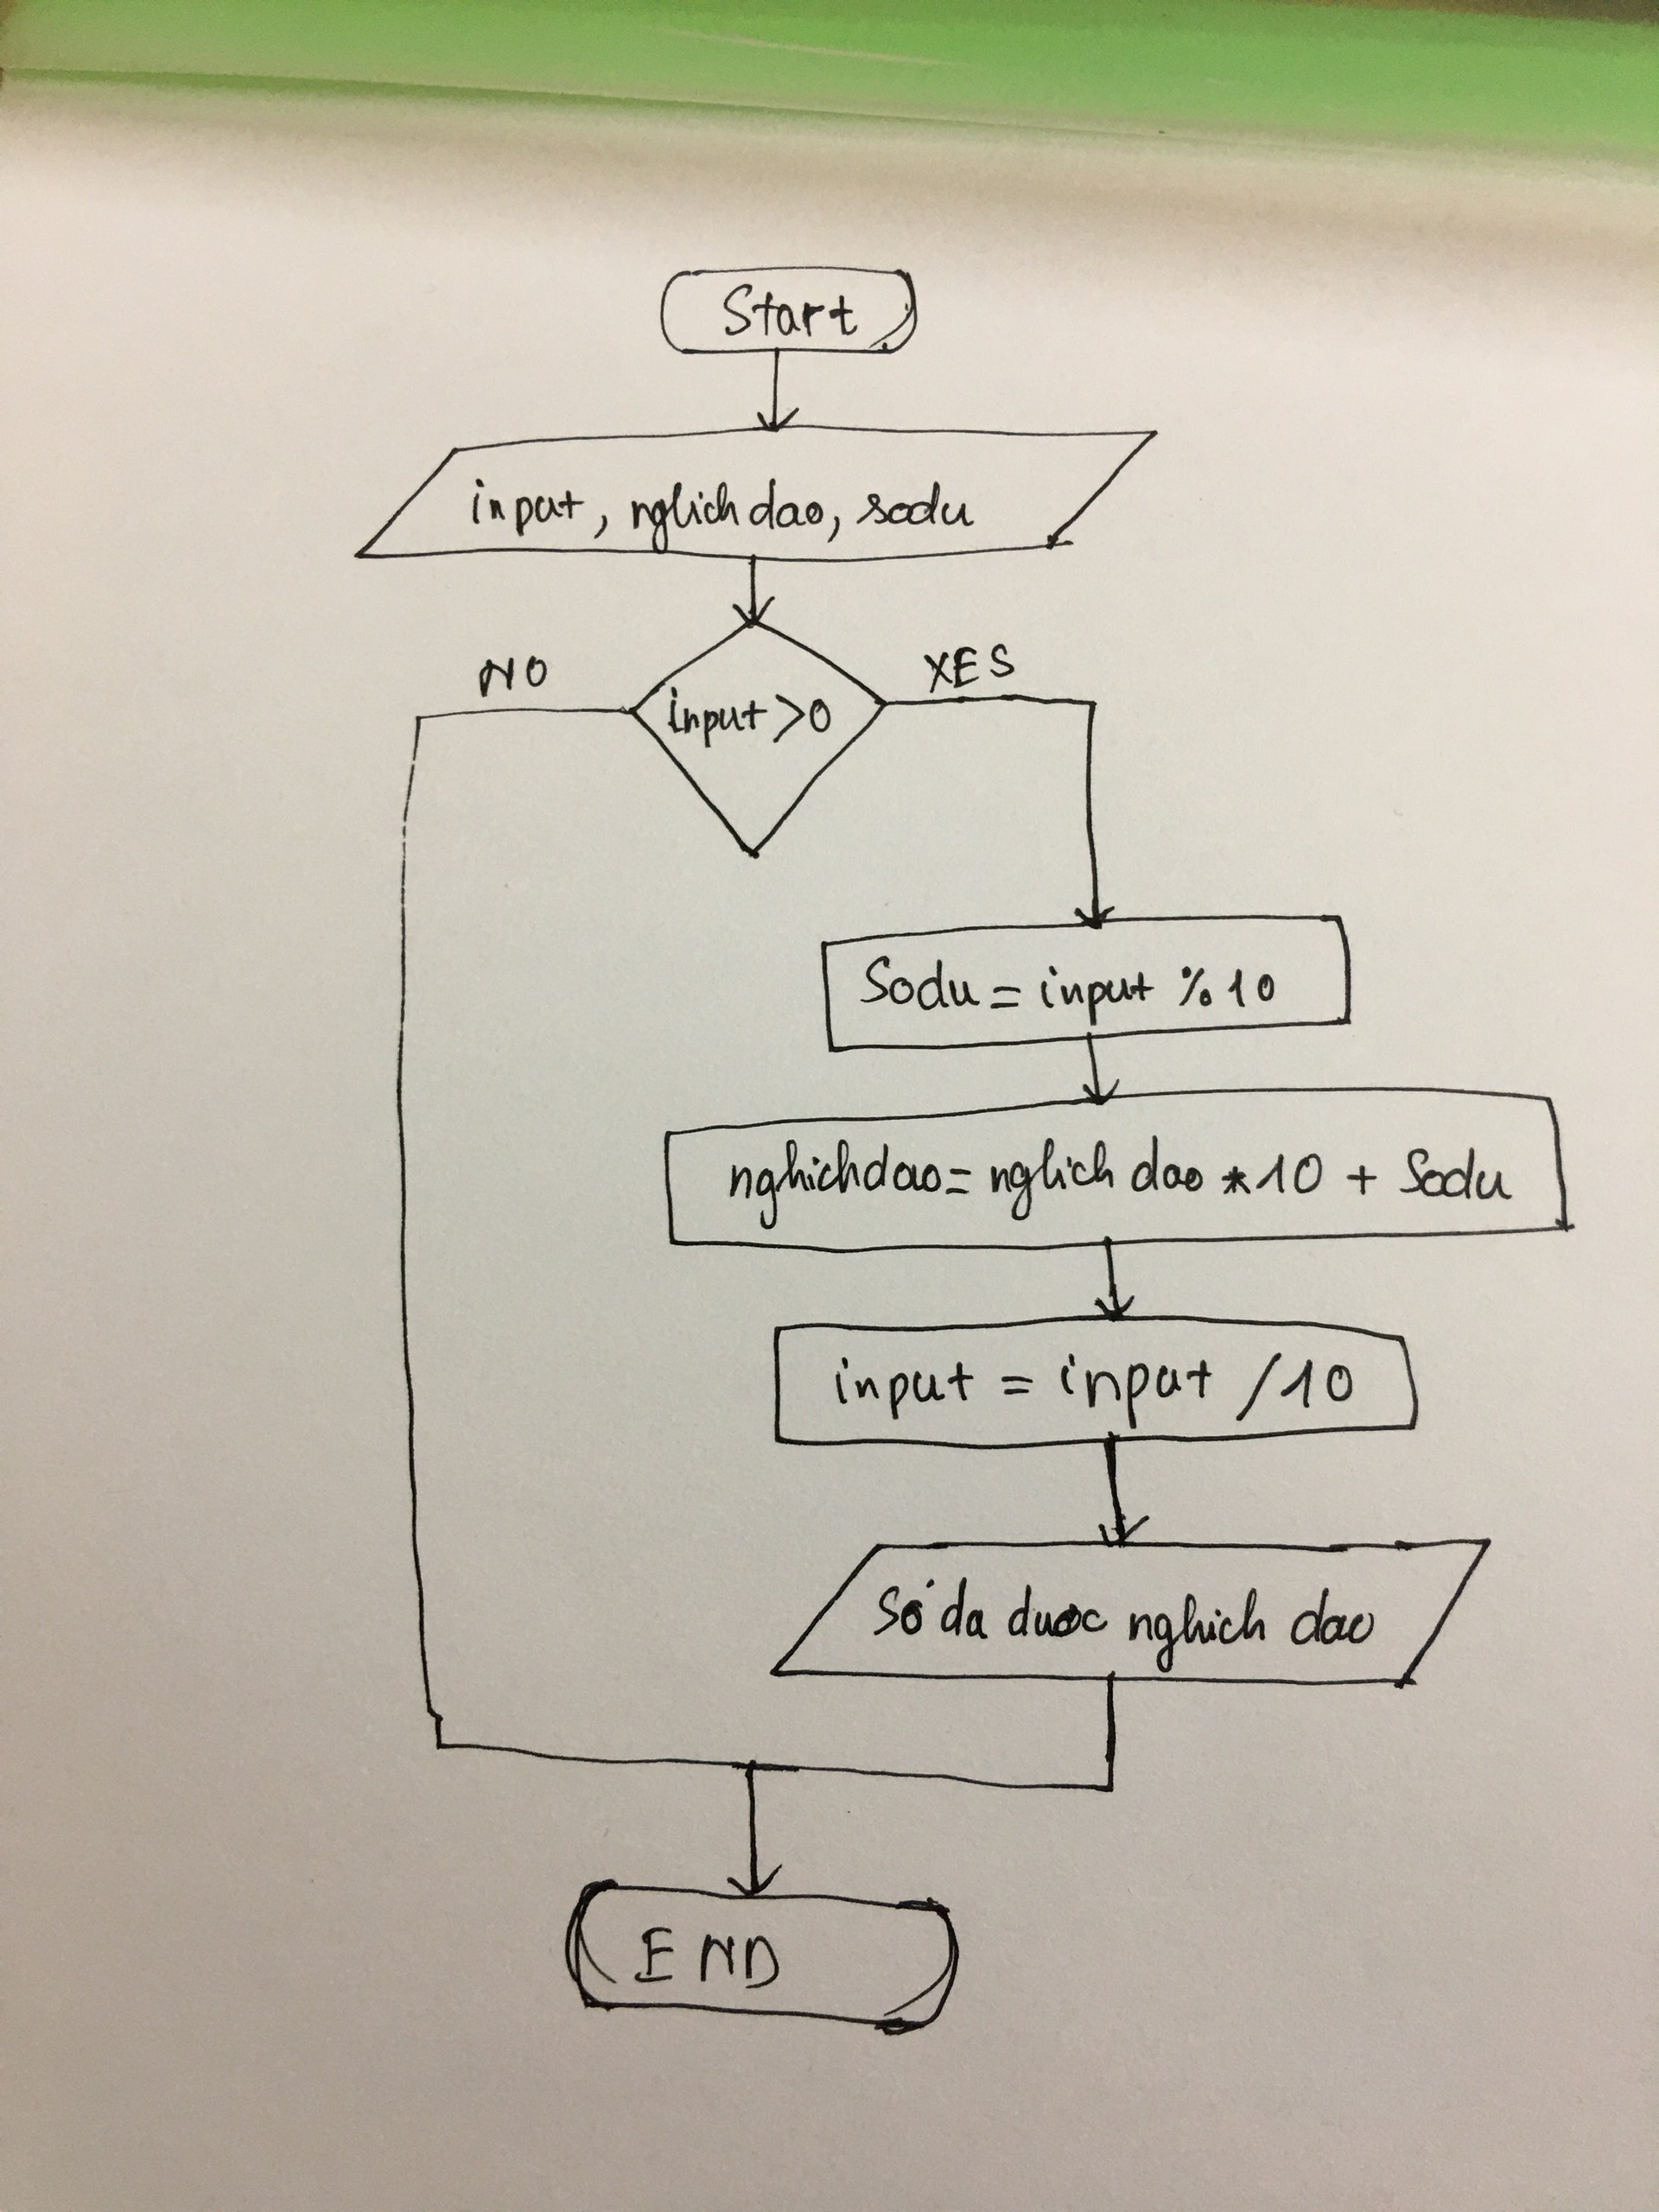 Start
input, nghichdao, sodu
input >0
NO
YES
Sodu = input % 10
nghichdao = nghich dao * 10 + Sodu
input = input / 10
Số da duoc nghich dao
END